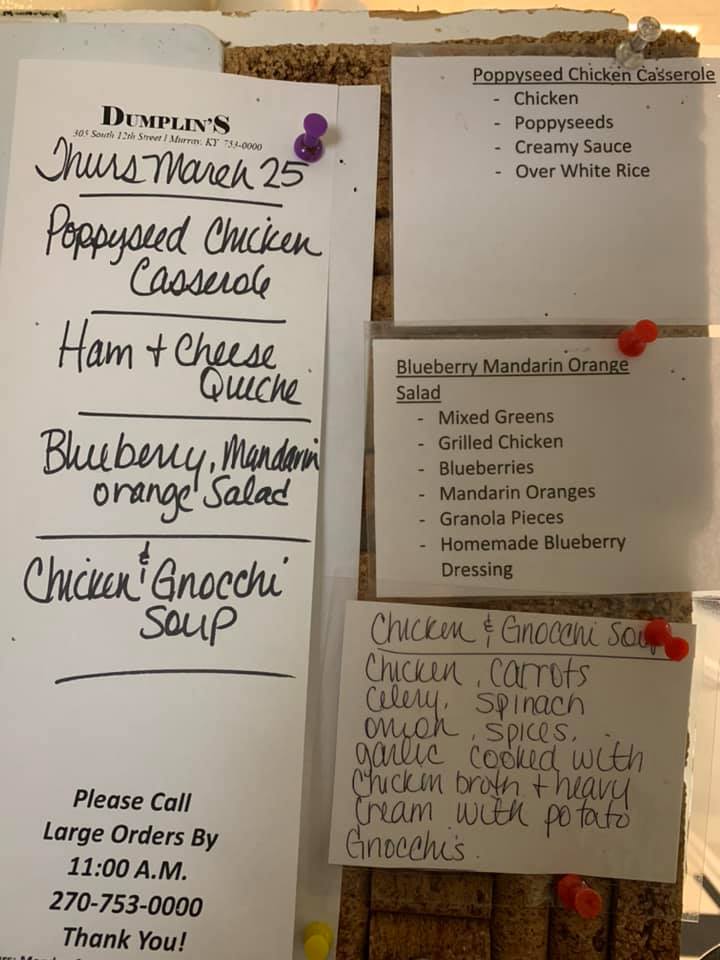 DUMPLIN'S
305 South 12th Street | Murray, KY 753-0000
Thurs March 25
Poppyseed Chicken
Casserole
Ham + Cheese
Quiche
Blueberry, Mandarin
orange Salad
Chicken & Gnocchi
Soup
Please Call
Large Orders By
11:00 A.M.
270-753-0000
Thank You!
Poppyseed Chicken Casserole
- Chicken
- Poppyseeds
- Creamy Sauce
- Over White Rice
Blueberry Mandarin Orange
Salad
- Mixed Greens
- Grilled Chicken
- Blueberries
- Mandarin Oranges
- Granola Pieces
- Homemade Blueberry
Dressing
Chicken & Gnocchi Soup
Chicken, Carrots
Celery, Spinach
onion, spices,
garlic cooked with
Chicken broth + heavy
Cream with potato
Gnocchi's.